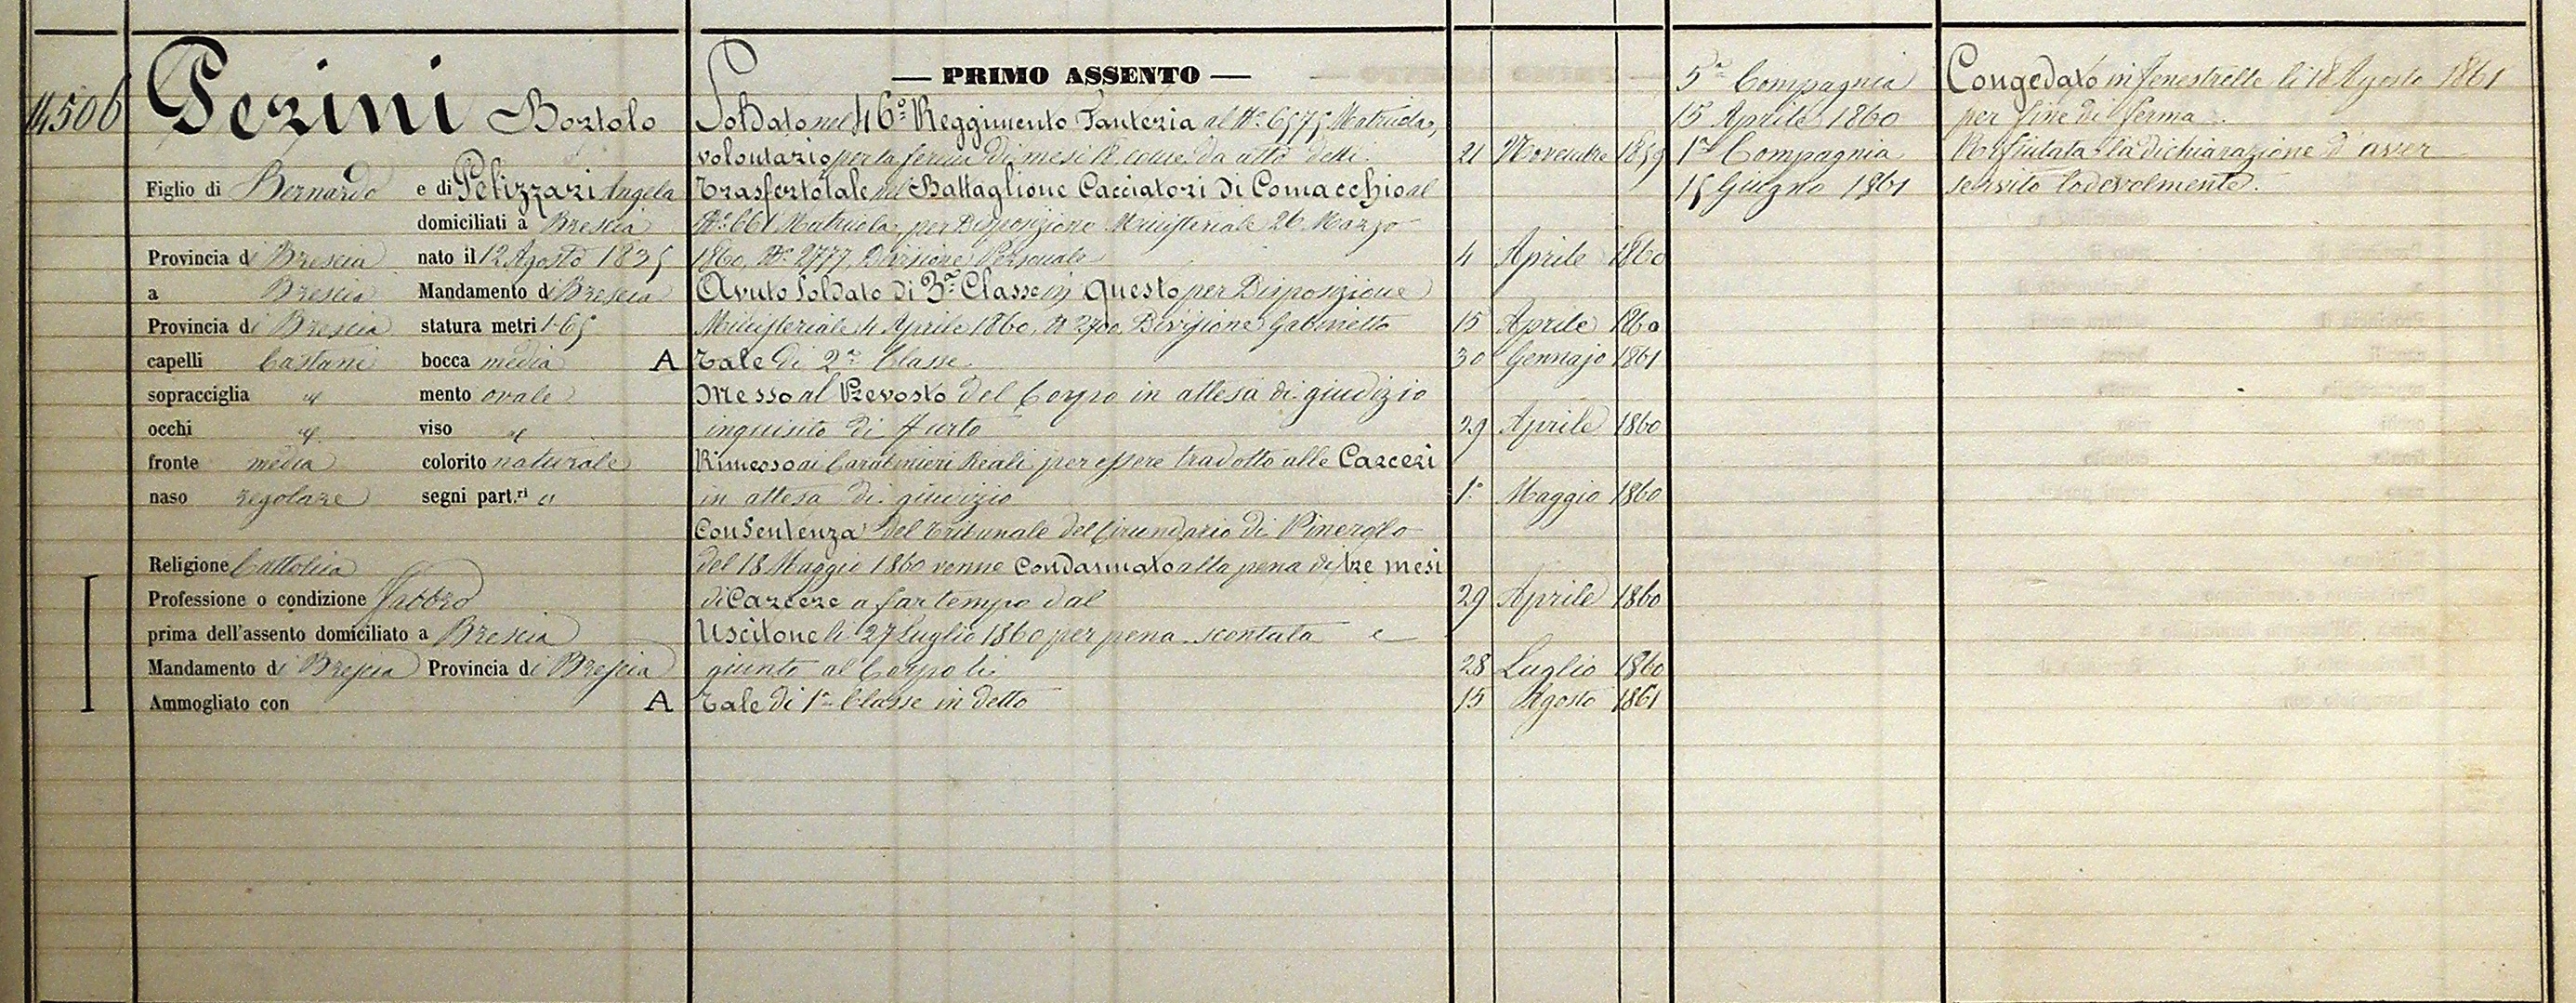 14506
Perini Bortolo
Figlio di Bernardo e di Pelizzari Angela
domiciliati a Brescia
Provincia di Brescia nato il 12 Agosto 1835
a Brescia Mandamento di Brescia
Provincia di Brescia statura metri 1.65
capelli Castani bocca media
sopracciglia id mento ovale
occhi id viso id
fronte media colorito naturale
naso regolare segni part.ri "
Religione Cattolica
Professione o condizione fabbro
prima dell'assento domiciliato a Brescia
Mandamento di Brescia Provincia di Brescia
Ammogliato con
— PRIMO ASSENTO —
Soldato nel 46° Reggimento Fanteria al N° 6575 Matricola,
volontario per la ferma di mesi 18 come da atto detti. 21 Novembre 1859
Trasferto tale nel Battaglione Cacciatori di Comacchio al
N° 661 Matricola, per Disposizione Ministeriale 26 Marzo
1860, N° 2777, Divisione Personale 4 Aprile 1860
Avuto Soldato di 3a Classe in Questo per Disposizione
Ministeriale 4 Aprile 1860, N 2700, Divisione Gabinetto 15 Aprile 1860
A Tale di 2a Classe 30 Gennajo 1861
Messo al Prevosto del Corpo in attesa di giudizio
inquisito di furto 29 Aprile 1860
Rimesso ai Carabinieri Reali per essere tradotto alle Carceri
in attesa di giudizio 1° Maggio 1860
Con Sentenza del Tribunale del Circondario di Pinerolo
del 18 Maggio 1860 venne Condannato alla pena di tre mesi
di Carcere a far tempo dal 29 Aprile 1860
Uscitone li 27 Luglio 1860 per pena scontata e
giunto al Corpo li 28 Luglio 1860
A Tale di 1a Classe in detto 15 Agosto 1861
5a Compagnia
15 Aprile 1860
1a Compagnia
15 Giugno 1861
Congedato in Fenestrelle li 18 Agosto 1861
per fine di ferma.
Rifiutata la dichiarazione d'aver
servito lodevolmente.